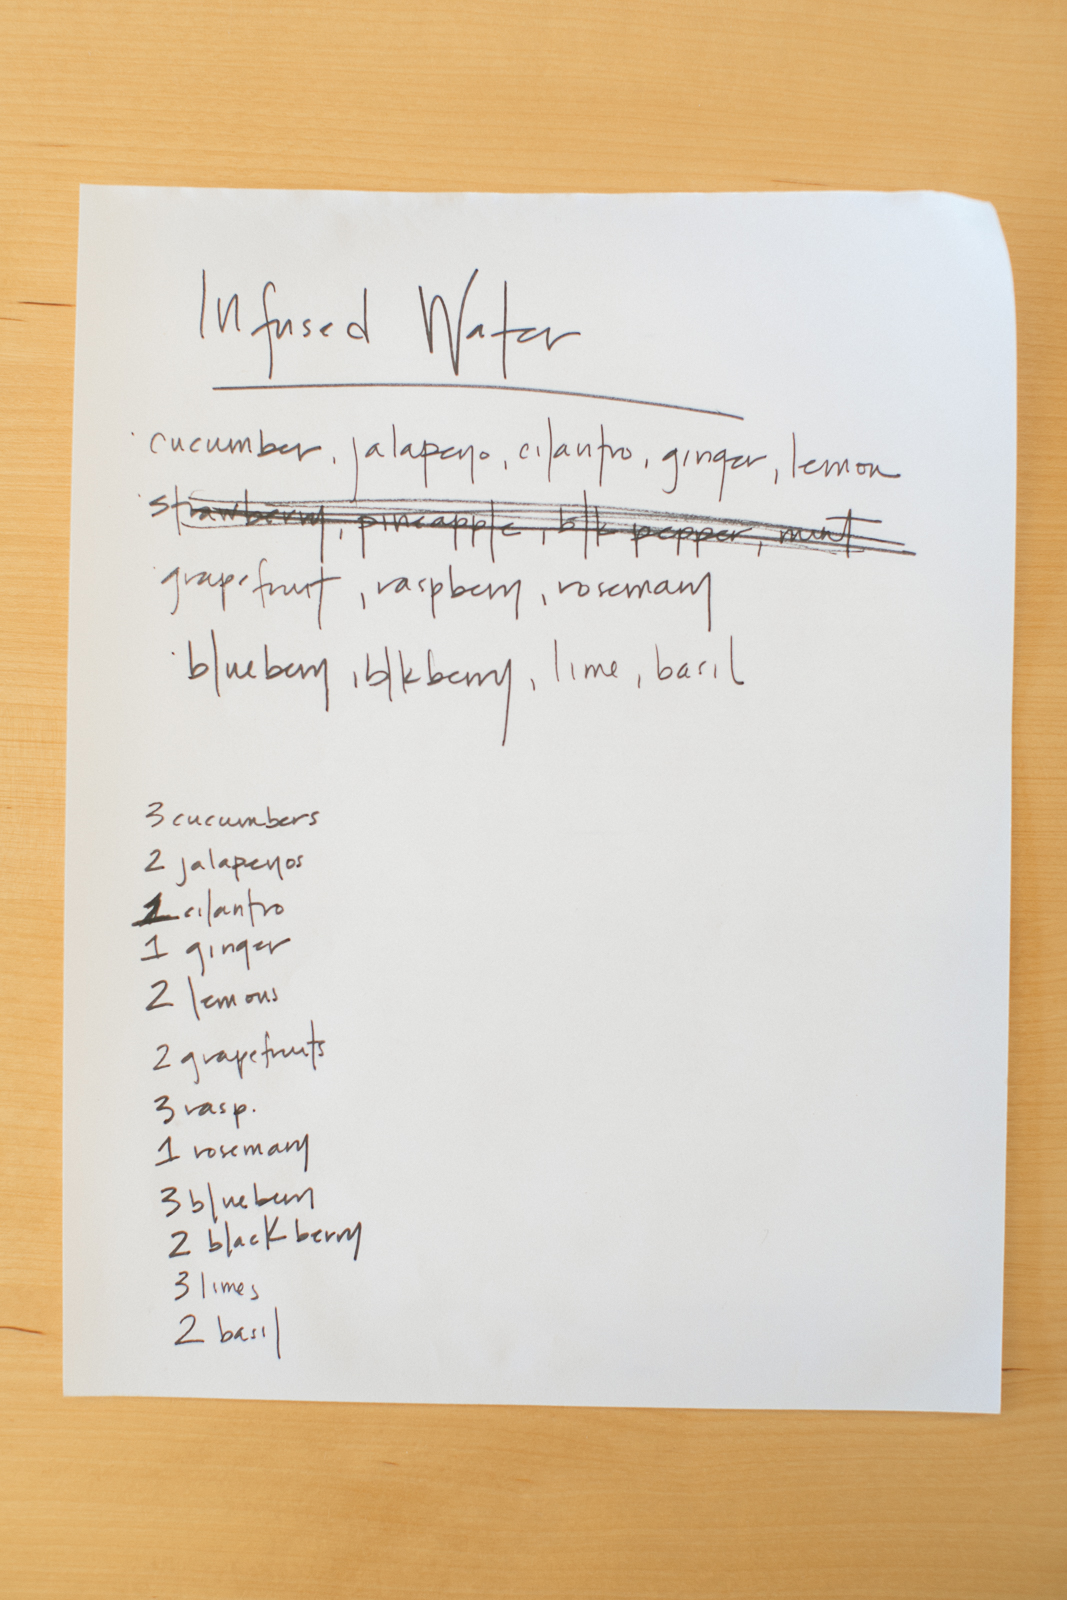 Infused Water
· cucumber, jalapeyo, cilantro, ginger, lemon
· strawberry, pineapple, blk pepper, mint
· grapefruit, raspberry, rosemary
· blueberry, blkberry, lime, basil
3 cucumbers
2 jalapeyos
1 cilantro
1 ginger
2 lemons
2 grapefruits
3 rasp.
1 rosemary
3 blueberry
2 blackberry
3 limes
2 basil